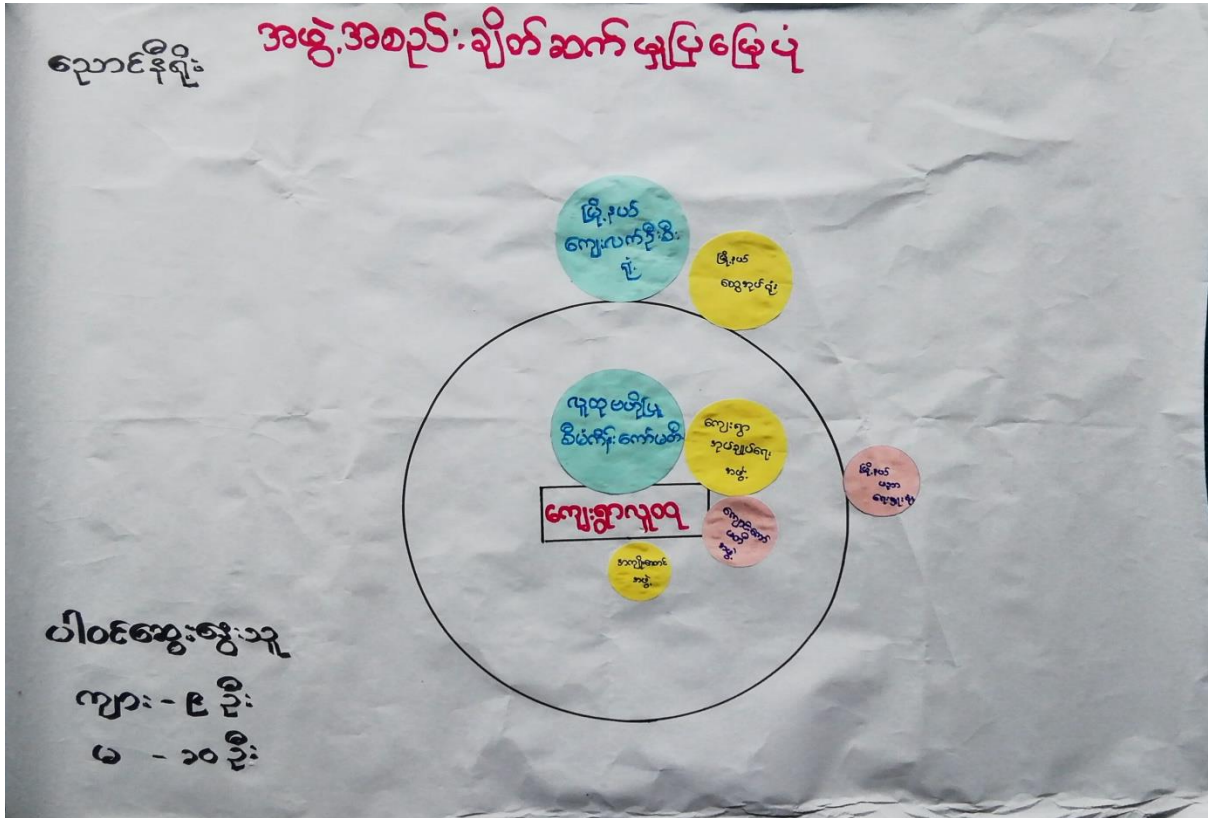 အဖွဲ့အစည်းချိတ်ဆက်မှုပြမြေပုံ
ညောင်နီရိုး
မြို့နယ်
ကျေးလက်ဦးစီး
ရုံး
မြို့နယ်
ထွေအုပ်ရုံး
လူထုဗဟိုပြု
စီမံကိန်းကော်မတီ
ကျေးရွာ
အုပ်ချုပ်ရေး
အဖွဲ့
မြို့နယ်
ပညာရေးမှူးရုံး
ကျေးရွာလူထု
ကျောင်းကော်
မတီ
အဖွဲ့
အကျိုးဆောင်
အဖွဲ့
ပါဝင်ဆွေးနွေးသူ
ကျား - ၉ ဦး
မ - ၁၀ ဦး